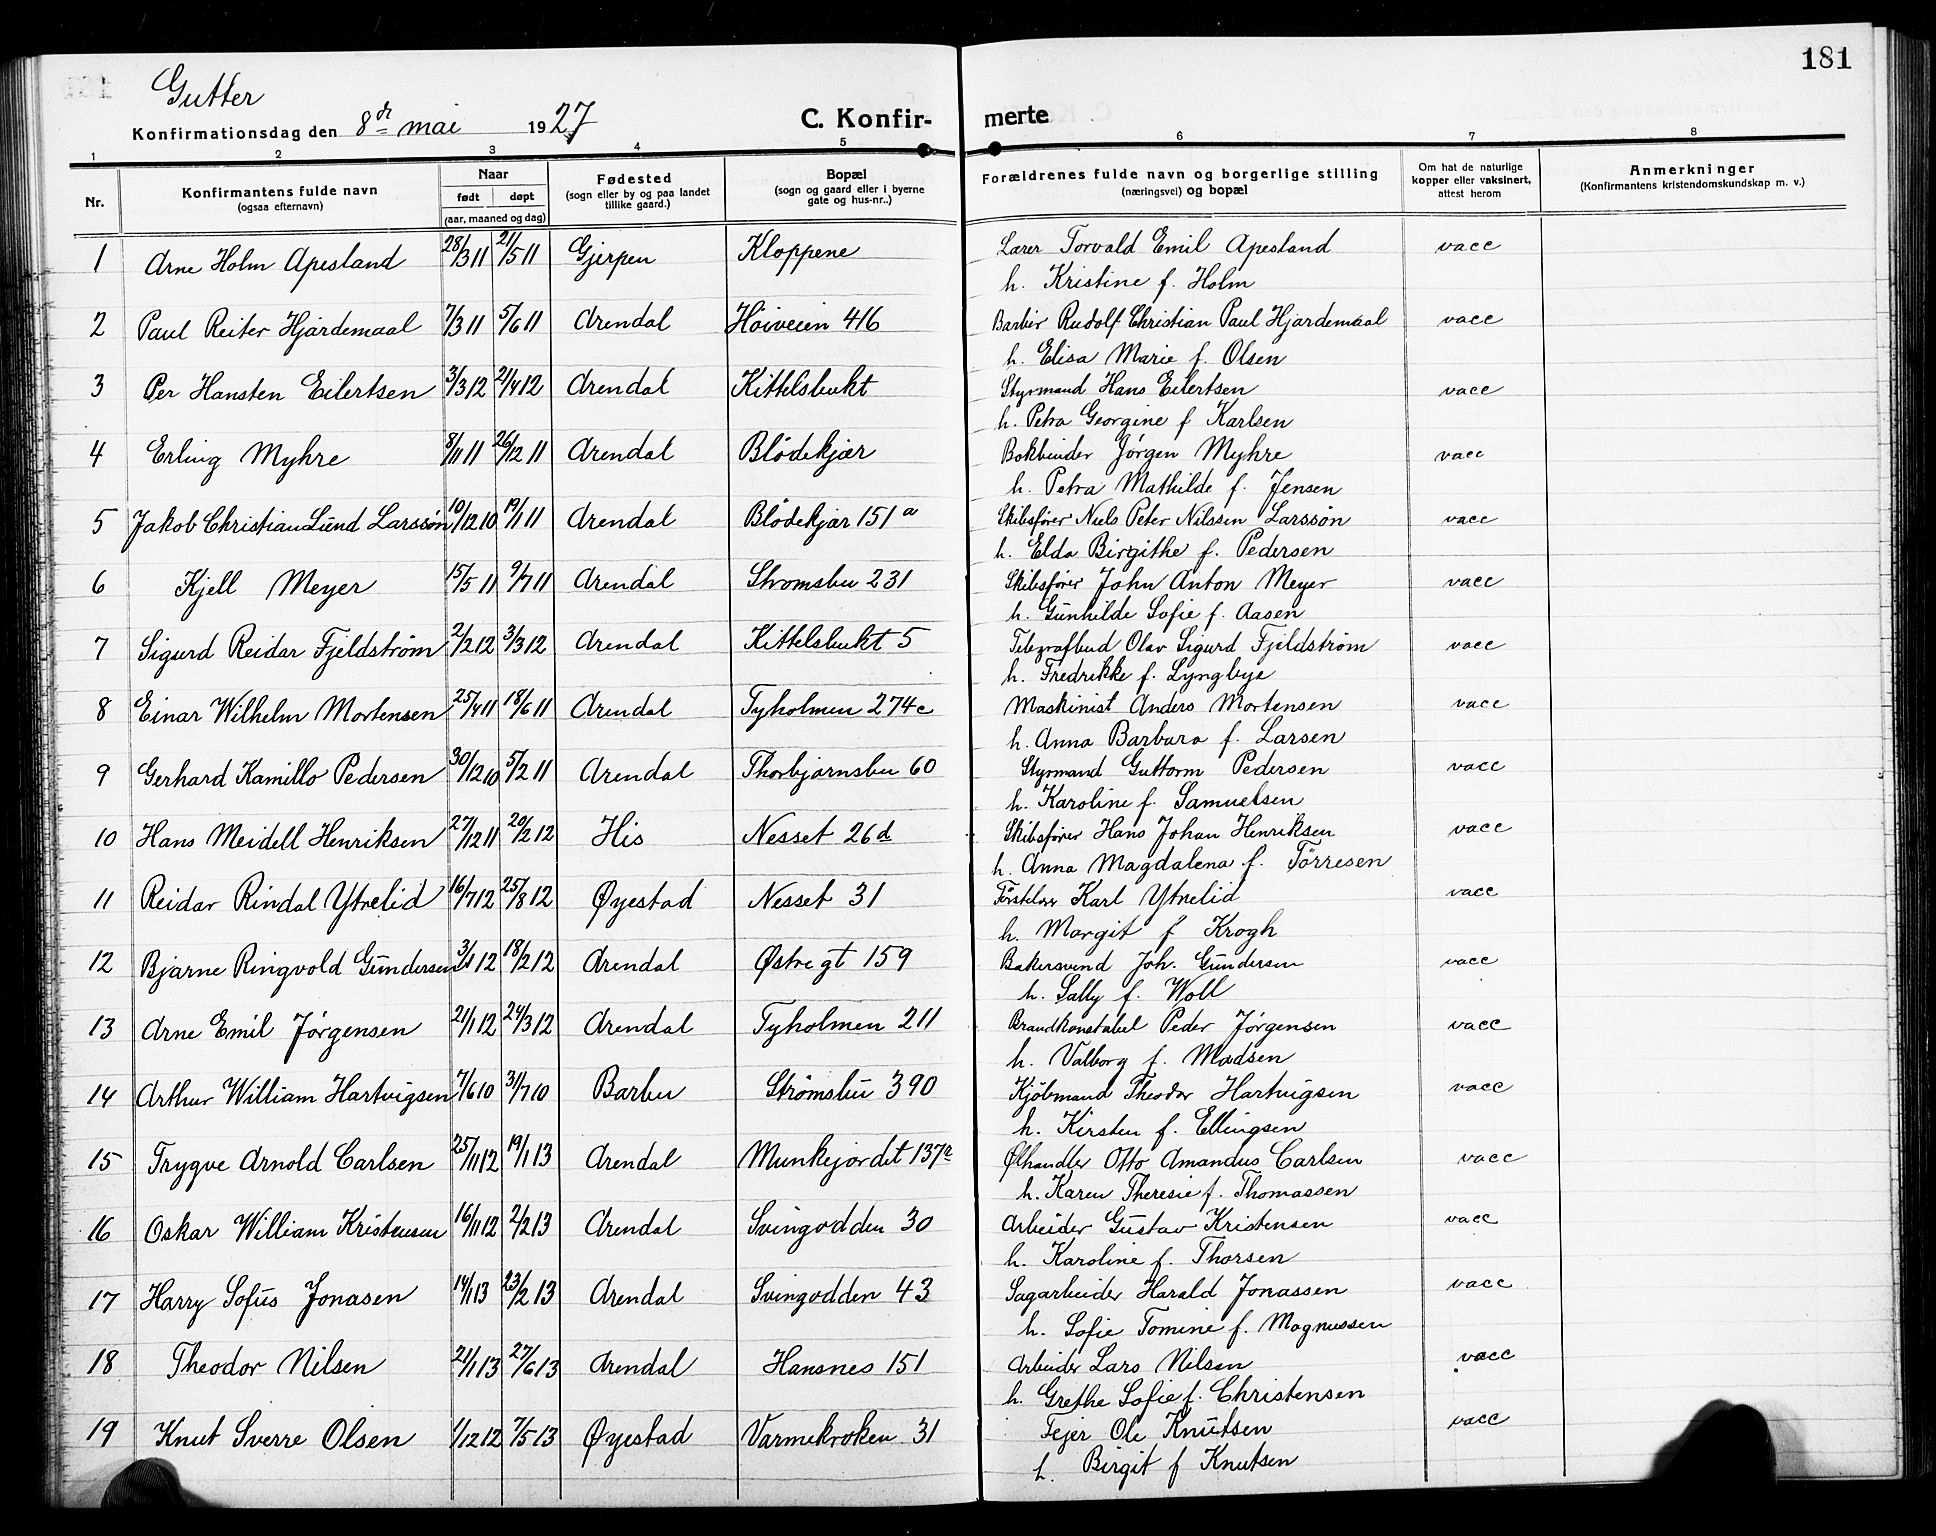 181
Gutter
Konfirmationsdag den 8de mai 1927
C. Konfirmerte
1 2 3 4 5 6 7 8
Nr. Konfirmantens fulde navn (ogsaa efternavn) Naar født døpt (aar, maaned og dag) Fødested (sogn eller by og paa landet tillike gaard.) Bopæl (sogn og gaard eller i byerne gate og hus-nr..) Forældrenes fulde navn og borgerlige stilling (næringsvei) og bopæl Om hat de naturlige kopper eller vaksinert, attest herom Anmerkninger (Konfirmantens kristendomskundskap m. v.)
1 Arne Holm Apesland 28/3 11 21/5 11 Gjerpen Kloppene Lærer Torvald Emil Apesland vacc
h. Kristine f. Holm
2 Paul Reiter Hjardemaal 7/3 11 5/6 11 Arendal Høiveien 416 Barbér Rudolf Christian Paul Hjardemaal vacc
h. Elisa Marie f. Olsen
3 Per Hansten Eilertsen 3/3 12 21/4 12 Arendal Kittelsbukt Styrmand Hans Eilertsen vacc
h. Petra Georgine f Karlsen
4 Erling Myhre 8/11 11 26/12 11 Arendal Blödekjær Bokbinder Jørgen Myhre vacc
h. Petra Mathilde f. Jensen
5 Jakob Christian Lund Larssøn 10/12 10 19/1 11 Arendal Blödekjær 151 a Skibsfører Niels Peter Nilssen Larssøn vacc
h. Elda Birgithe f. Pedersen
6 Kjell Meyer 15/5 11 9/7 11 Arendal Strømsbu 231 Skibsfører John Anton Meyer vacc
h. Gunhilde Sofie f. Aasen
7 Sigurd Reidar Fjeldstrøm 2/2 12 3/3 12 Arendal Kittelsbukt 5 Telegrafbud Olav Sigurd Fjeldstrøm vacc
h. Fredrikke f. Lyngbye
8 Einar Wilhelm Mortensen 25/4 11 18/6 11 Arendal Tyholmen 274c Maskinist Anders Mortensen vacc
h. Anna Barbara f. Larsen
9 Gerhard Kamillo Pedersen 30/12 10 5/2 11 Arendal Thorbjørnsbu 60 Styrmand Guttorm Pedersen vacc
h. Karoline f. Samuelsen
10 Hans Meidell Henriksen 27/12 11 20/2 12 His Nesset 26d Skibsfører Hans Johan Henriksen vacc
h. Anna Magdalena f. Tørresen
11 Reidar Rindal Ytrelid 16/7 12 25/8 12 Øyestad Nesset 31 Förstelærer Karl Ytrelid vacc
h. Margit f Krogh
12 Bjarne Ringvold Gundersen 3/1 12 18/2 12 Arendal Østregt 159 Bakersvend Joh. Gundersen vacc
h. Sally f. Woll
13 Arne Emil Jørgensen 21/1 12 24/3 12 Arendal Tyholmen 211 Brandkonstabel Peder Jørgensen vacc
h. Valborg f. Madsen
14 Arthur William Hartvigsen 7/6 10 31/7 10 Barbu Strømsbu 390 Kjöbmand Theodor Hartvigsen vacc
h. Kirsten f. Ellingsen
15 Trygve Arnold Carlsen 25/11 12 19/1 13 Arendal Munkejordet 137 Ølhandler Otto Amandus Carlsen vacc
h. Karen Theresie f. Thomassen
16 Oskar William Kristensen 16/11 12 2/2 13 Arendal Svingodden 30 Arbeider Gustav Kristensen vacc
h. Karoline f. Thorsen
17 Harry Sofus Jonasen 14/1 13 23/2 13 Arendal Svingodden 43 Sagarbeider Harald Jonassen vacc
h. Sofie Tomine f. Magnussen
18 Theodor Nilsen 21/1 13 27/6 13 Arendal Hansnes 151 Arbeider Lars Nilsen vacc
h. Grethe Sofie f. Christensen
19 Knut Sverre Olsen 1/12 12 7/5 13 Øyestad Varmekroken 31 Fejer Ole Knutsen vacc
h. Birgit f Knutsen